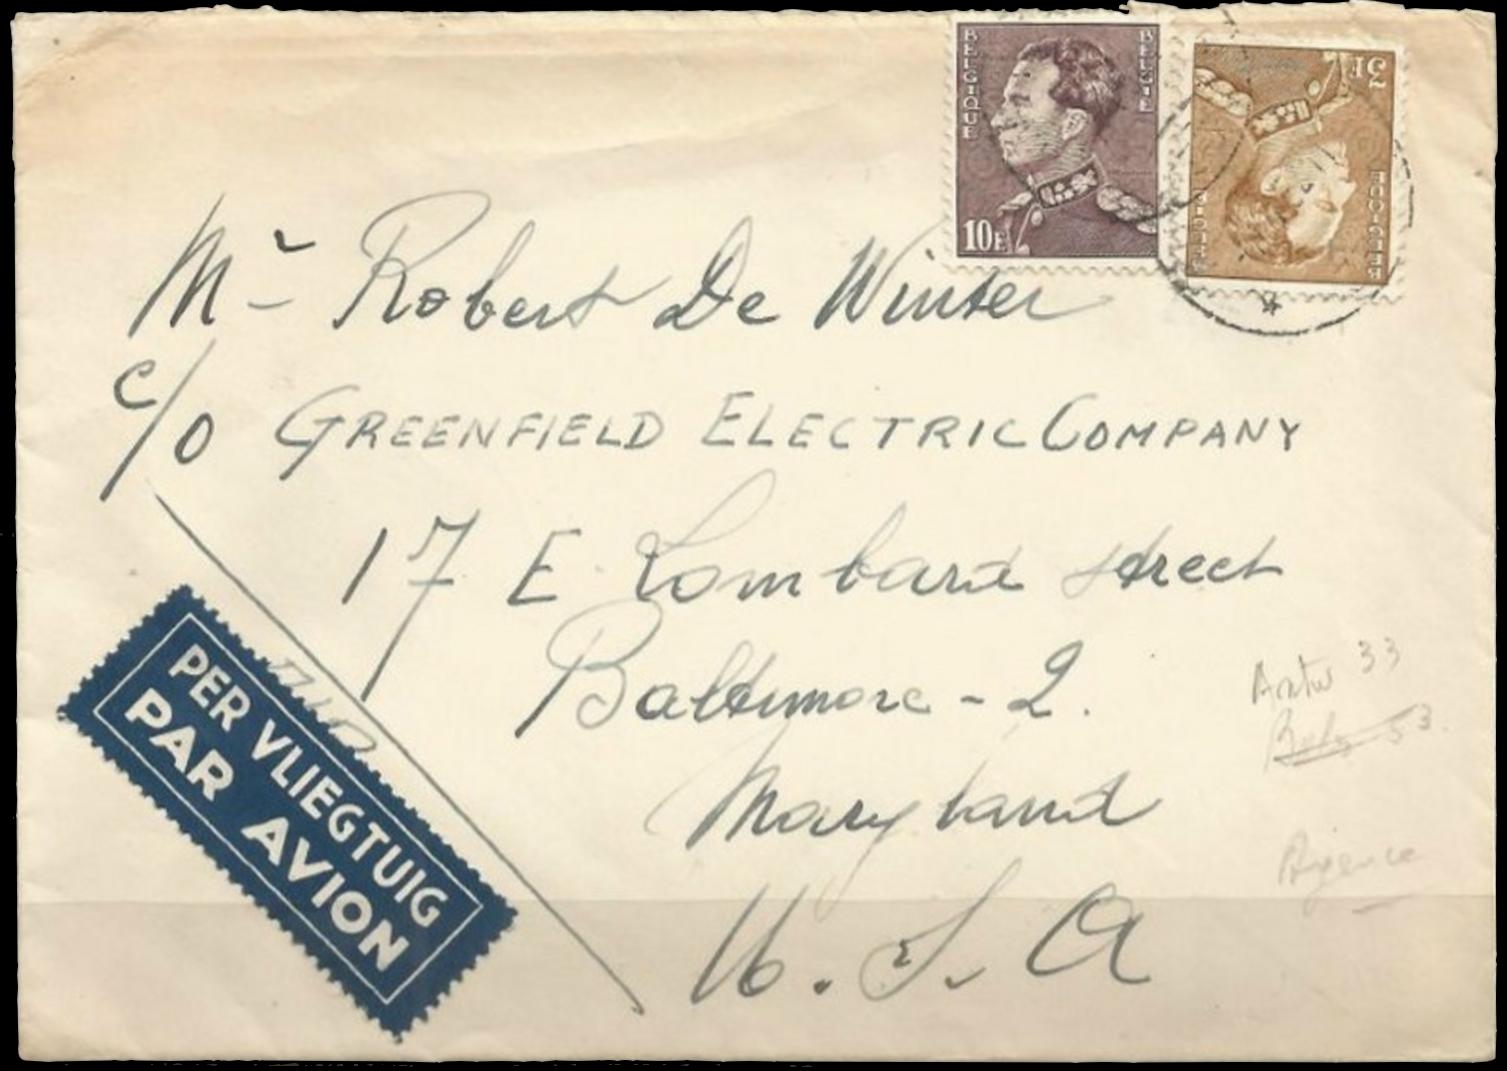 BELGIQUE BELGIË
10F
5F
BELGIQUE BELGIË
Mr Robert De Winter
c/o GREENFIELD ELECTRIC COMPANY
17 E Lombard street
Baltimore - 2.
Maryland
U.S.A
PER VLIEGTUIG
PAR AVION
Antw 33
53.
Agence